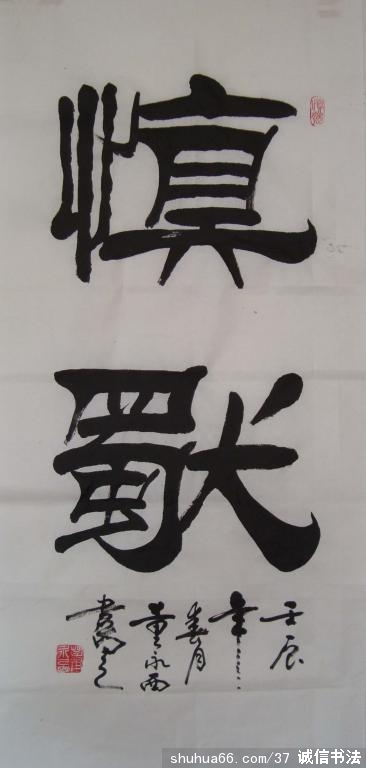 慎
獨
壬辰
年
春月
董永西
shuhua66.com/37 诚信书法